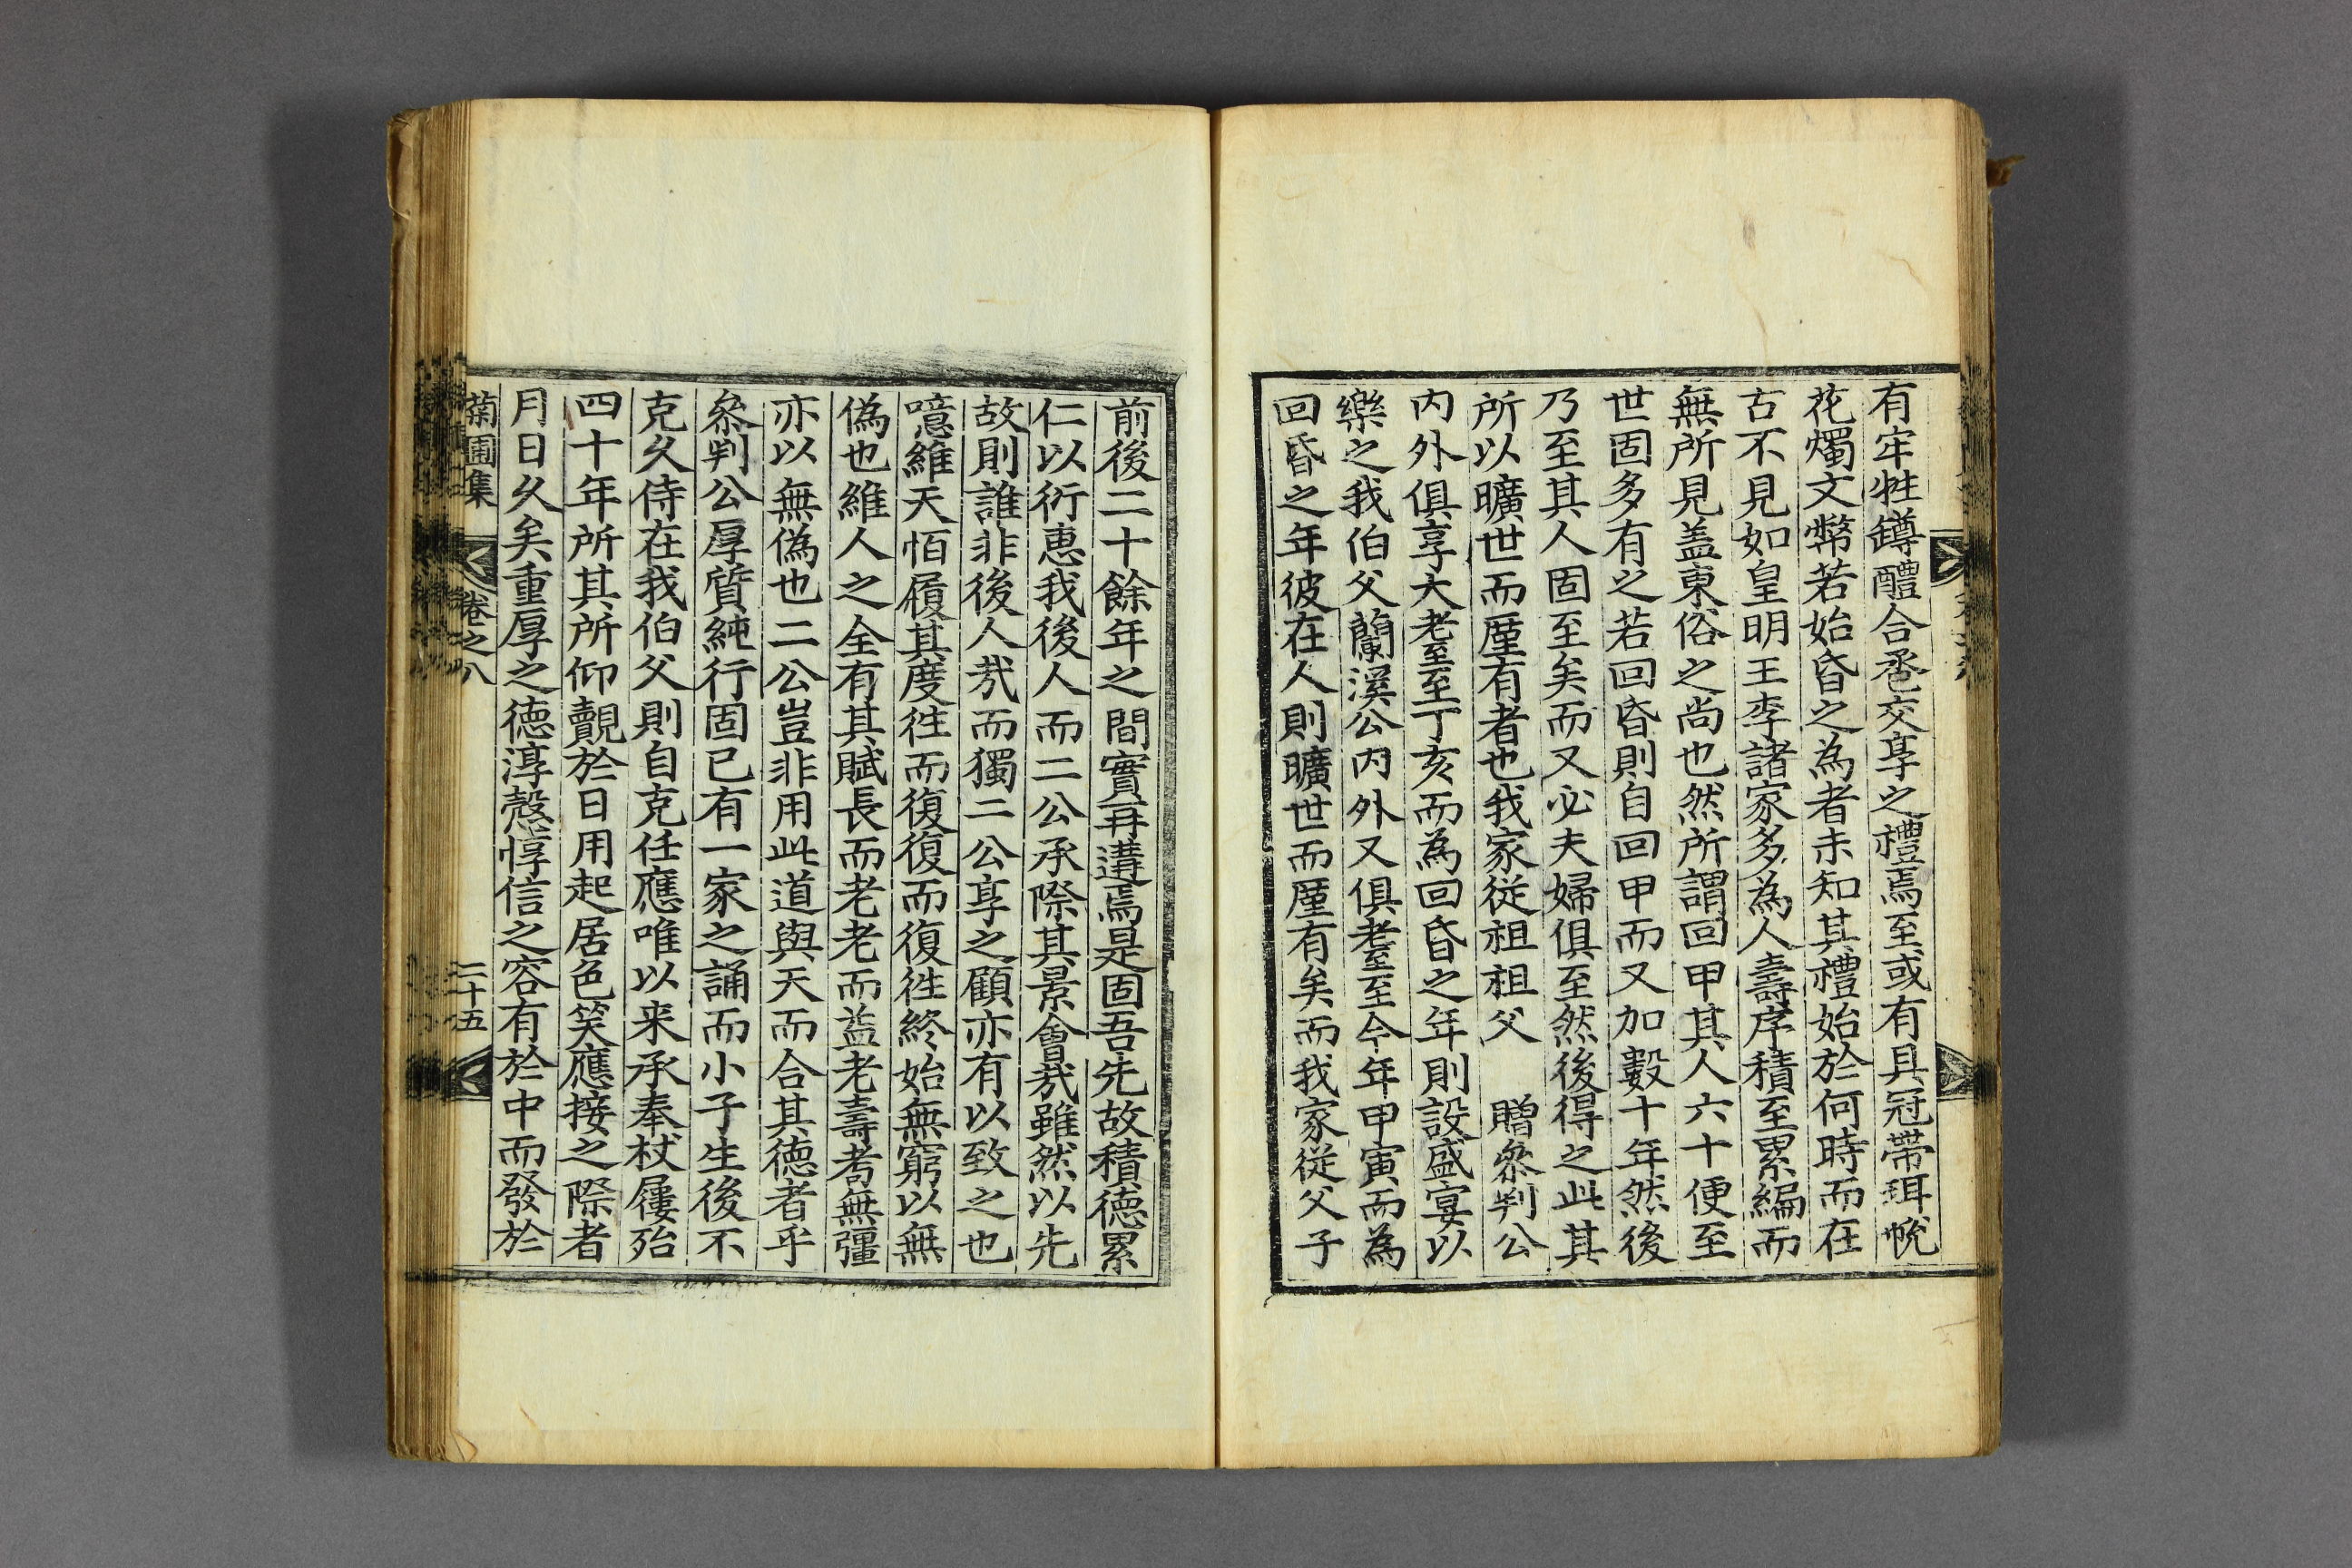 有牢牲罇醴合巹交享之禮焉至或有具冠帶珥帨
花燭文幣若始昏之為者未知其禮始於何時而在
古不見如皇明王李諸家多為人壽序積至累編而
無所見盖東俗之尚也然所謂回甲其人六十便至
世固多有之若回昏則自回甲而又加數十年然後
乃至其人固至矣而又必夫婦俱至然後得之此其
所以曠世而厪有者也我家從祖祖父 贈叅判公
內外俱享大耋至丁亥而為回昏之年則設盛宴以
樂之我伯父蘭溪公內外又俱耋至今年甲寅而為
回昏之年彼在人則曠世而厪有矣而我家從父子
前後二十餘年之間實再遘焉是固吾先故積德累
仁以衍惠我後人而二公承際其景會㦲雖然以先
故則誰非後人㦲而獨二公享之顧亦有以致之也
噫維天恒履其度徃而復復而復徃終始無窮以無
偽也維人之全有其賦長而老老而益老壽考無彊
亦以無偽也二公豈非用此道與天而合其德者乎
叅判公厚質純行固已有一家之誦而小子生後不
克久侍在我伯父則自克任應唯以来承奉杖屨殆
四十年所其所仰覿於日用起居色笑應接之際者
月日久矣重厚之德淳慤惇信之容有於中而發於
菊圃集 卷之八 二十五